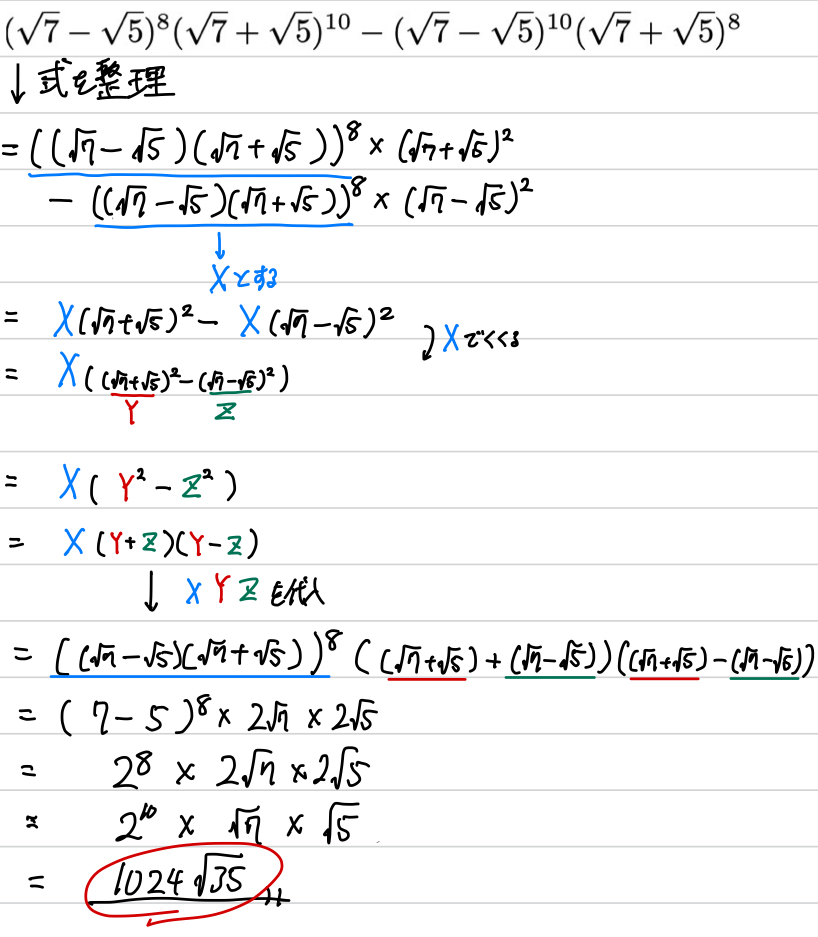 (√7 − √5)^8(√7 + √5)^10 − (√7 − √5)^10(√7 + √5)^8
↓ 式を整理
= ((√7 − √5)(√7 + √5))^8 × (√7 + √5)^2
− ((√7 − √5)(√7 + √5))^8 × (√7 − √5)^2
↓
Xとする
= X(√7 + √5)^2 − X(√7 − √5)^2
Xでくくる
= X((√7 + √5)^2 − (√7 − √5)^2)
Y Z
= X(Y^2 − Z^2)
= X(Y + Z)(Y − Z)
↓ X Y Z を代入
= ((√7 − √5)(√7 + √5))^8 ((√7 + √5) + (√7 − √5))((√7 + √5) − (√7 − √5))
= (7 − 5)^8 × 2√7 × 2√5
= 2^8 × 2√7 × 2√5
= 2^10 × √7 × √5
= 1024√35